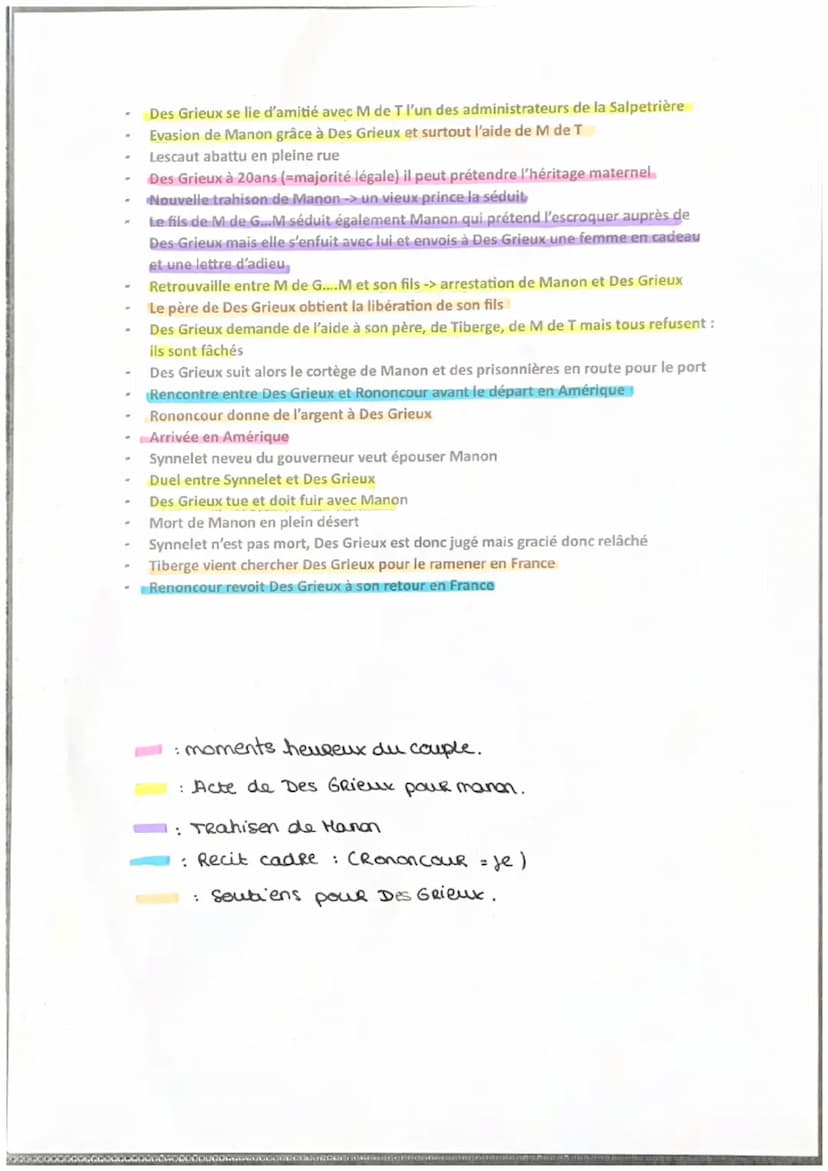 - Des Grieux se lie d'amitié avec M de T l'un des administrateurs de la Salpetrière
- Evasion de Manon grâce à Des Grieux et surtout l'aide de M de T
- Lescaut abattu en pleine rue
- Des Grieux à 20ans (=majorité légale) il peut prétendre l'héritage maternel
- Nouvelle trahison de Manon -> un vieux prince la séduit
- Le fils de M de G...M séduit également Manon qui prétend l'escroquer auprès de
Des Grieux mais elle s'enfuit avec lui et envois à Des Grieux une femme en cadeau
et une lettre d'adieu
- Retrouvaille entre M de G....M et son fils -> arrestation de Manon et Des Grieux
- Le père de Des Grieux obtient la libération de son fils
- Des Grieux demande de l'aide à son père, de Tiberge, de M de T mais tous refusent :
ils sont fâchés
- Des Grieux suit alors le cortège de Manon et des prisonnières en route pour le port
- Rencontre entre Des Grieux et Rononcour avant le départ en Amérique
- Rononcour donne de l'argent à Des Grieux
- Arrivée en Amérique
- Synnelet neveu du gouverneur veut épouser Manon
- Duel entre Synnelet et Des Grieux
- Des Grieux tue et doit fuir avec Manon
- Mort de Manon en plein désert
- Synnelet n'est pas mort, Des Grieux est donc jugé mais gracié donc relâché
- Tiberge vient chercher Des Grieux pour le ramener en France
- Renoncour revoit Des Grieux à son retour en France
: moments heureux du couple.
: Acte de Des Grieux pour manon.
: Trahison de Manon
: Recit cadre : (Rononcour = je)
: Soutiens pour Des Grieux.